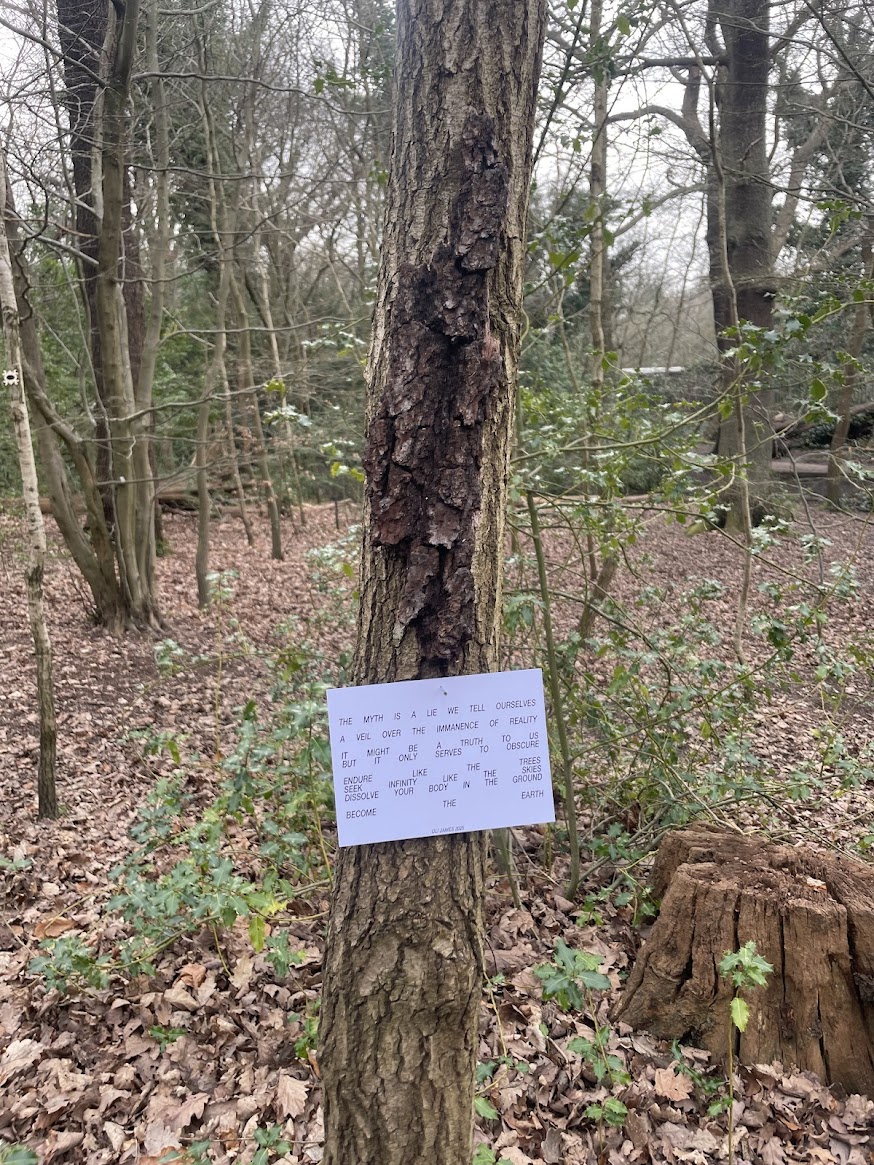 THE MYTH IS A LIE WE TELL OURSELVES
A VEIL OVER THE IMMANENCE OF REALITY
IT MIGHT BE A TRUTH TO US
BUT IT ONLY SERVES TO OBSCURE
ENDURE LIKE THE TREES
SEEK INFINITY LIKE THE SKIES
DISSOLVE YOUR BODY IN THE GROUND
BECOME THE EARTH